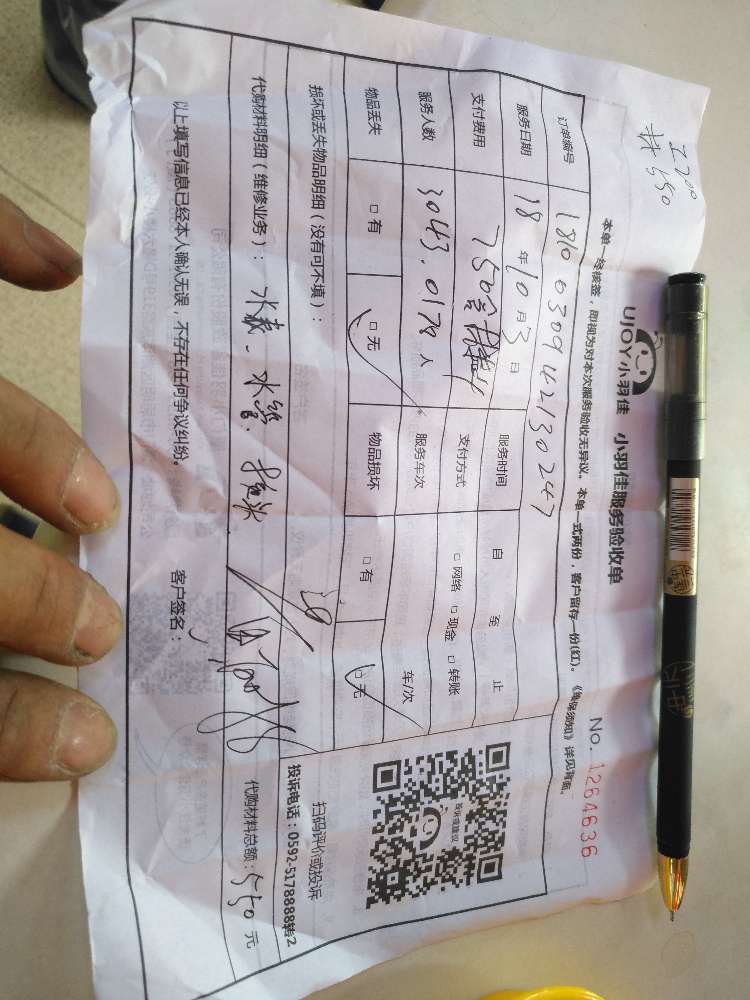 工200
材550
UJOY小羽佳 小羽佳服务验收单
No. 1264636
本单一经核签，即视为对本次服务验收无异议。本单一式两份，客户留存一份(红)。《维保须知》详见背面。
订单编号 1810030942130247
服务日期 18年10月3日 服务时间 自 至 止
支付费用 750含 支付方式 □网络 □现金 □转账
服务人数 3043.0178人 服务车次 车/次
物品丢失 □有 □无 物品损坏 □有 □无
投诉或建议
扫码评价或投诉
投诉电话：0592-5178888转2
损坏或丢失物品明细（没有可不填）：
代购材料明细（维修业务）：水表、水管、接头
代购材料总额：550元
以上填写信息已经本人确认无误，不存在任何争议纠纷。 客户签名：